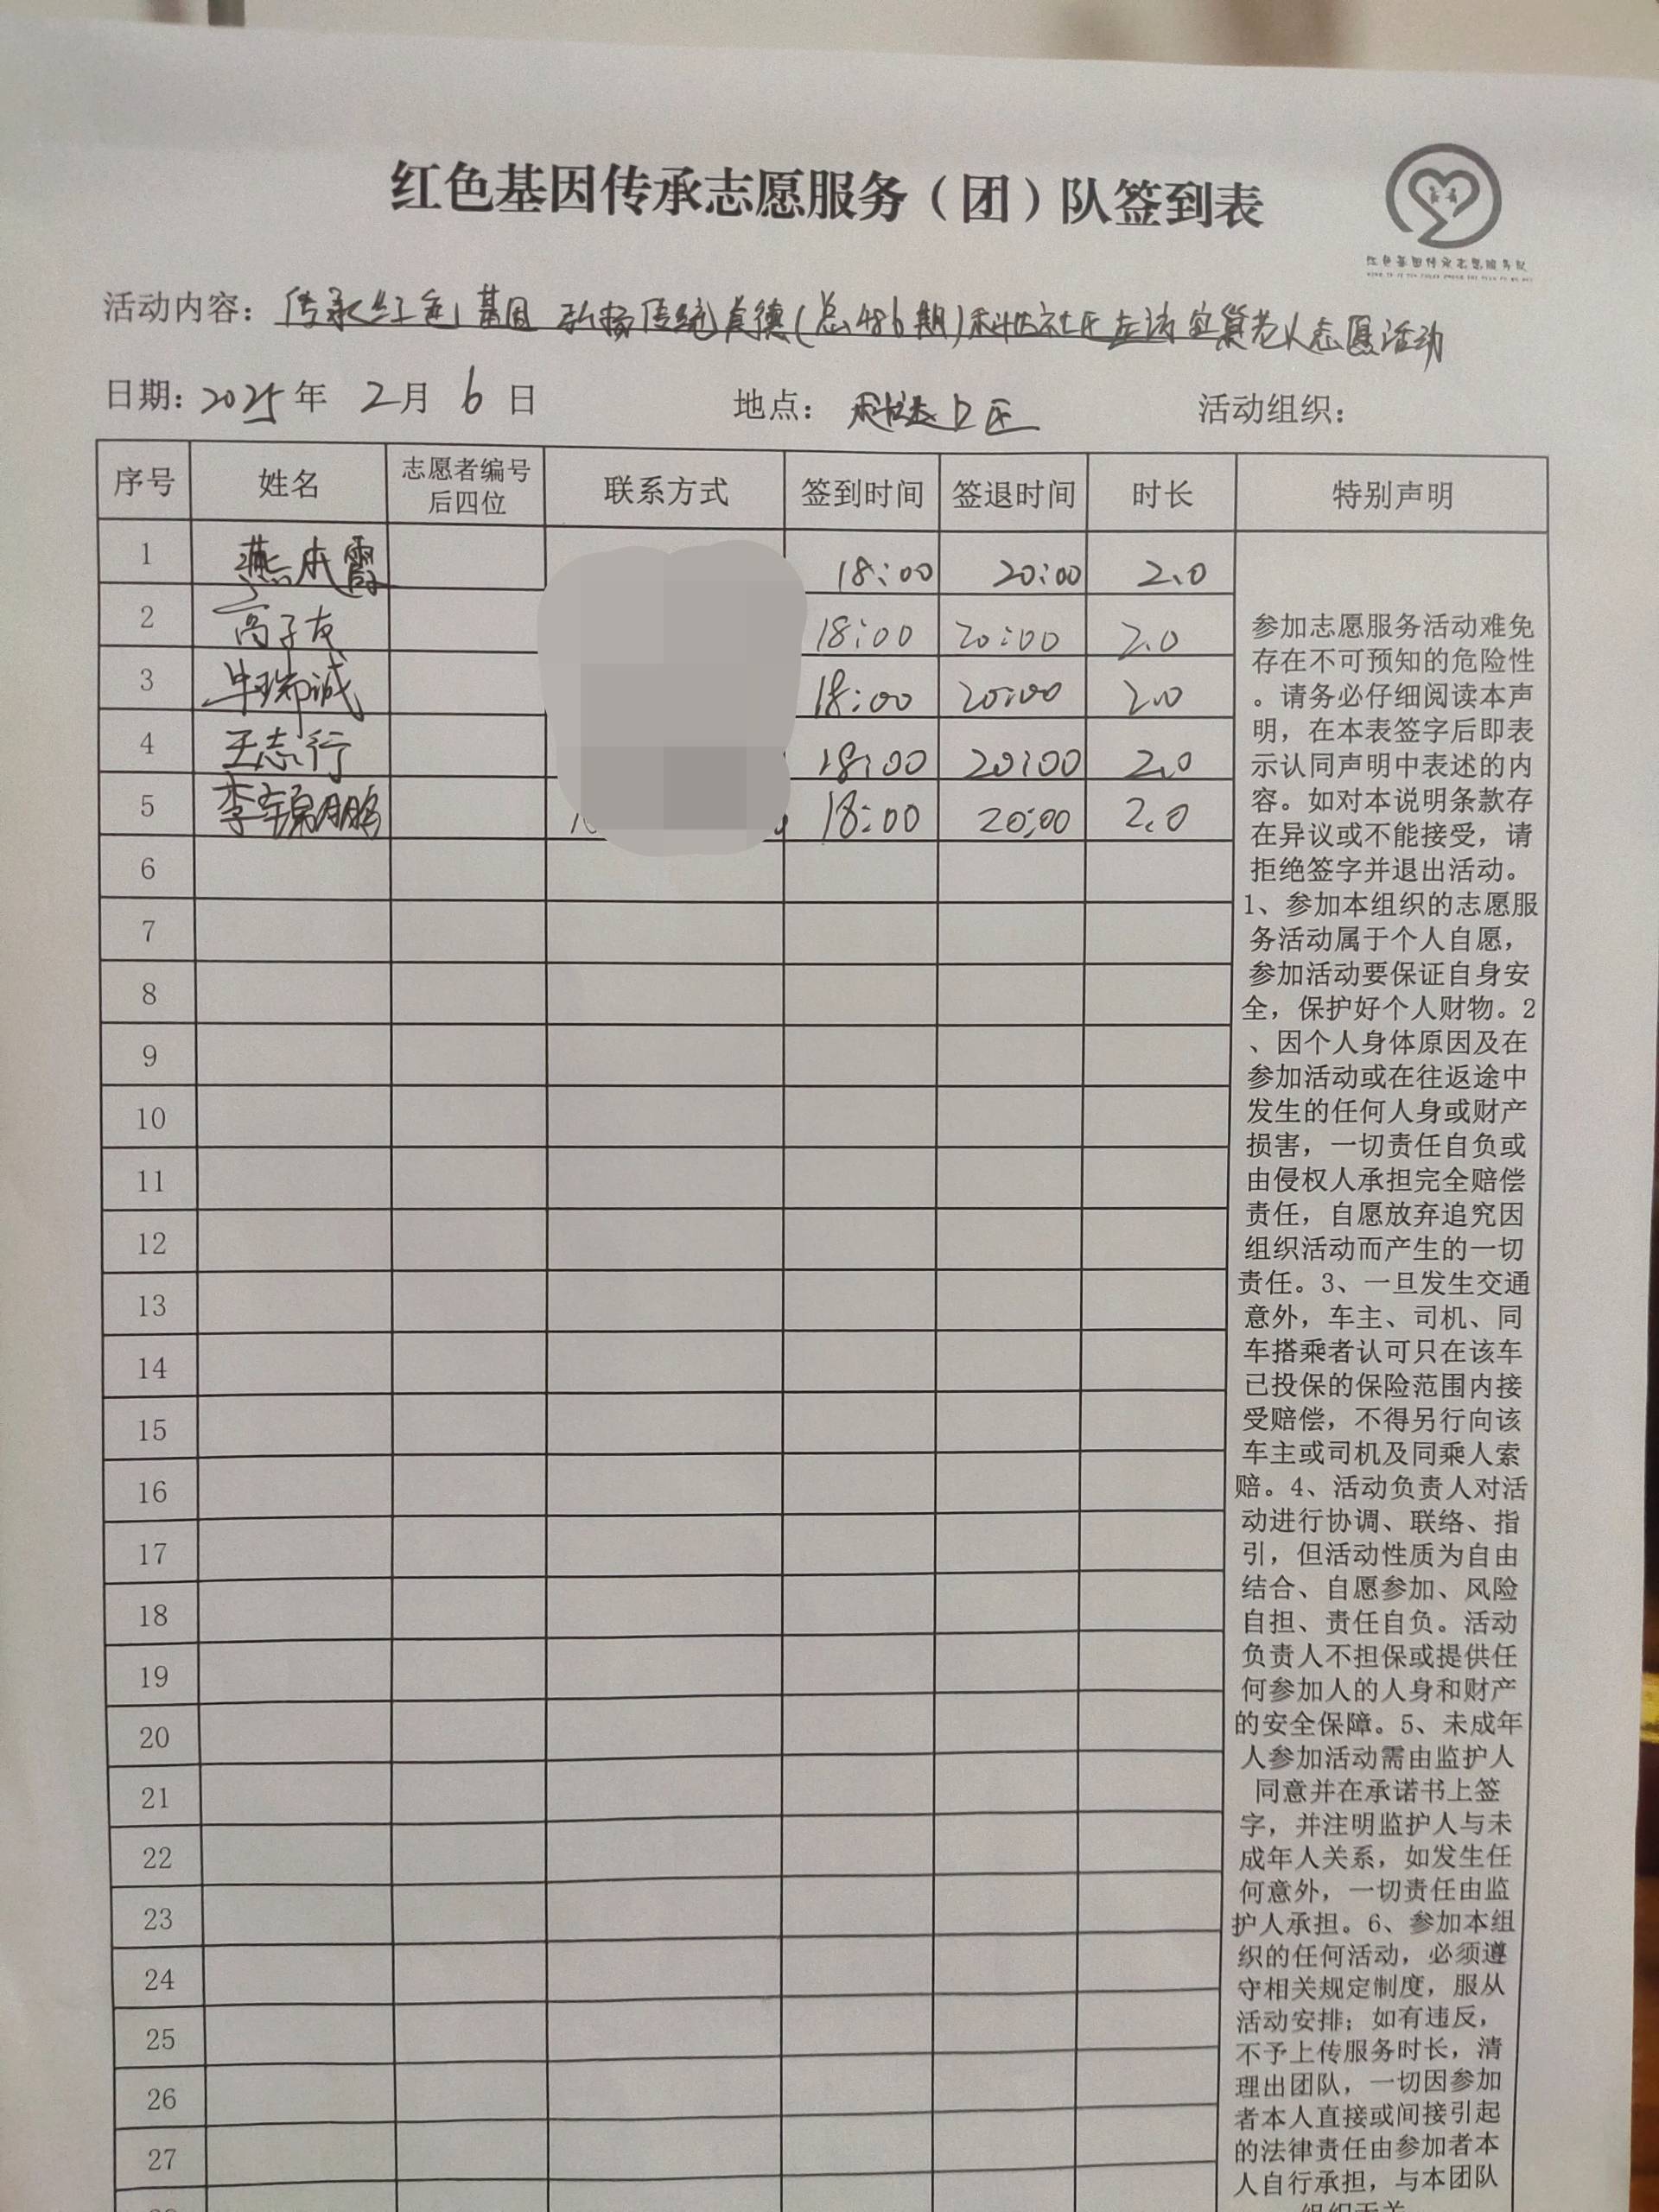 红色基因传承志愿服务（团）队签到表
红色基因传承志愿服务队
活动内容：传承红色基因 弘扬传统美德(总486期)科苑社区走访空巢老人志愿活动
日期：2025年 2月 6日 地点： 社区 活动组织：
序号 姓名 志愿者编号后四位 联系方式 签到时间 签退时间 时长 特别声明
1 燕本霞 18:00 20:00 2.0
2 高子友 18:00 20:00 2.0
3 毕瑞诚 18:00 20:00 2.0
4 王志行 18:00 20:00 2.0
5 李 鹏 18:00 20:00 2.0
6
7
8
9
10
11
12
13
14
15
16
17
18
19
20
21
22
23
24
25
26
27
参加志愿服务活动难免
存在不可预知的危险性
。请务必仔细阅读本声
明，在本表签字后即表
示认同声明中表述的内
容。如对本说明条款存
在异议或不能接受，请
拒绝签字并退出活动。
1、参加本组织的志愿服
务活动属于个人自愿，
参加活动要保证自身安
全，保护好个人财物。2
、因个人身体原因及在
参加活动或在往返途中
发生的任何人身或财产
损害，一切责任自负或
由侵权人承担完全赔偿
责任，自愿放弃追究因
组织活动而产生的一切
责任。3、一旦发生交通
意外，车主、司机、同
车搭乘者认可只在该车
已投保的保险范围内接
受赔偿，不得另行向该
车主或司机及同乘人索
赔。4、活动负责人对活
动进行协调、联络、指
引，但活动性质为自由
结合、自愿参加、风险
自担、责任自负。活动
负责人不担保或提供任
何参加人的人身和财产
的安全保障。5、未成年
人参加活动需由监护人
同意并在承诺书上签
字，并注明监护人与未
成年人关系，如发生任
何意外，一切责任由监
护人承担。6、参加本组
织的任何活动，必须遵
守相关规定制度，服从
活动安排；如有违反，
不予上传服务时长，清
理出团队，一切因参加
者本人直接或间接引起
的法律责任由参加者本
人自行承担，与本团队
组织无关